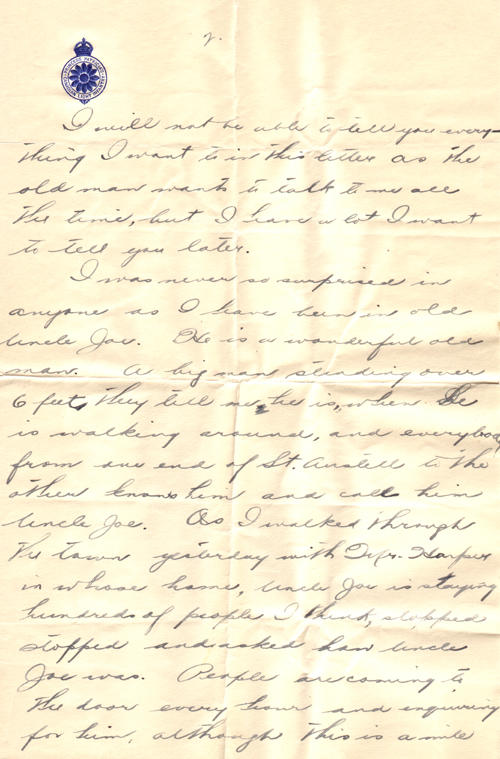 2.
I will not be able to tell you every-
thing I want to in this letter as the
old man wants to talk to me all
the time, but I have a lot I want
to tell you later.
I was never so surprised in
anyone as I have been in old
Uncle Joe. He is a wonderful old
man. A big man standing over
6 feet, they tell me, he is, when he
is walking around, and everybody
from one end of St. Austell to the
other knows him and call him
Uncle Joe. As I walked through
the town yesterday with Mr. Harper
in whose home, Uncle Joe is staying
hundreds of people I think, stopped
stopped and asked how Uncle
Joe was. People are coming to
the door every hour and enquiring
for him, although this is a mile